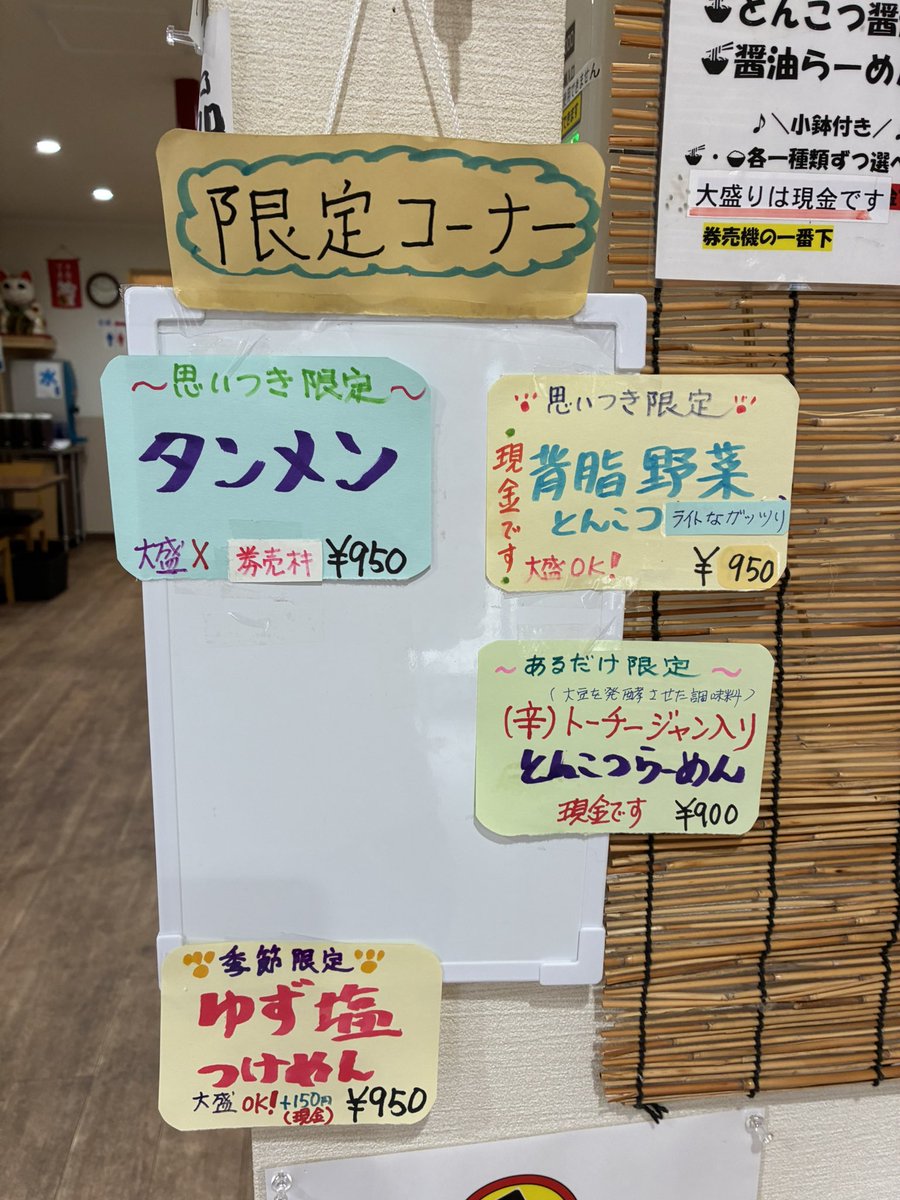 限定コーナー
~思いつき限定~
タンメン
大盛X 券売村 ¥950
思いつき限定
現金です
背脂野菜
とんこつ ライトなガッツリ
大盛OK! ¥950
~あるだけ限定~
(大豆を発酵させた調味料)
(辛)トーチージャン入り
とんこつらーめん
現金です ¥900
季節限定
ゆず塩
つけめん
大盛OK!+150円(現金) ¥950
とんこつ醤
醤油らーめん
♪\小鉢付き/
・各一種類ずつ選べ
大盛りは現金です
券売機の一番下
水